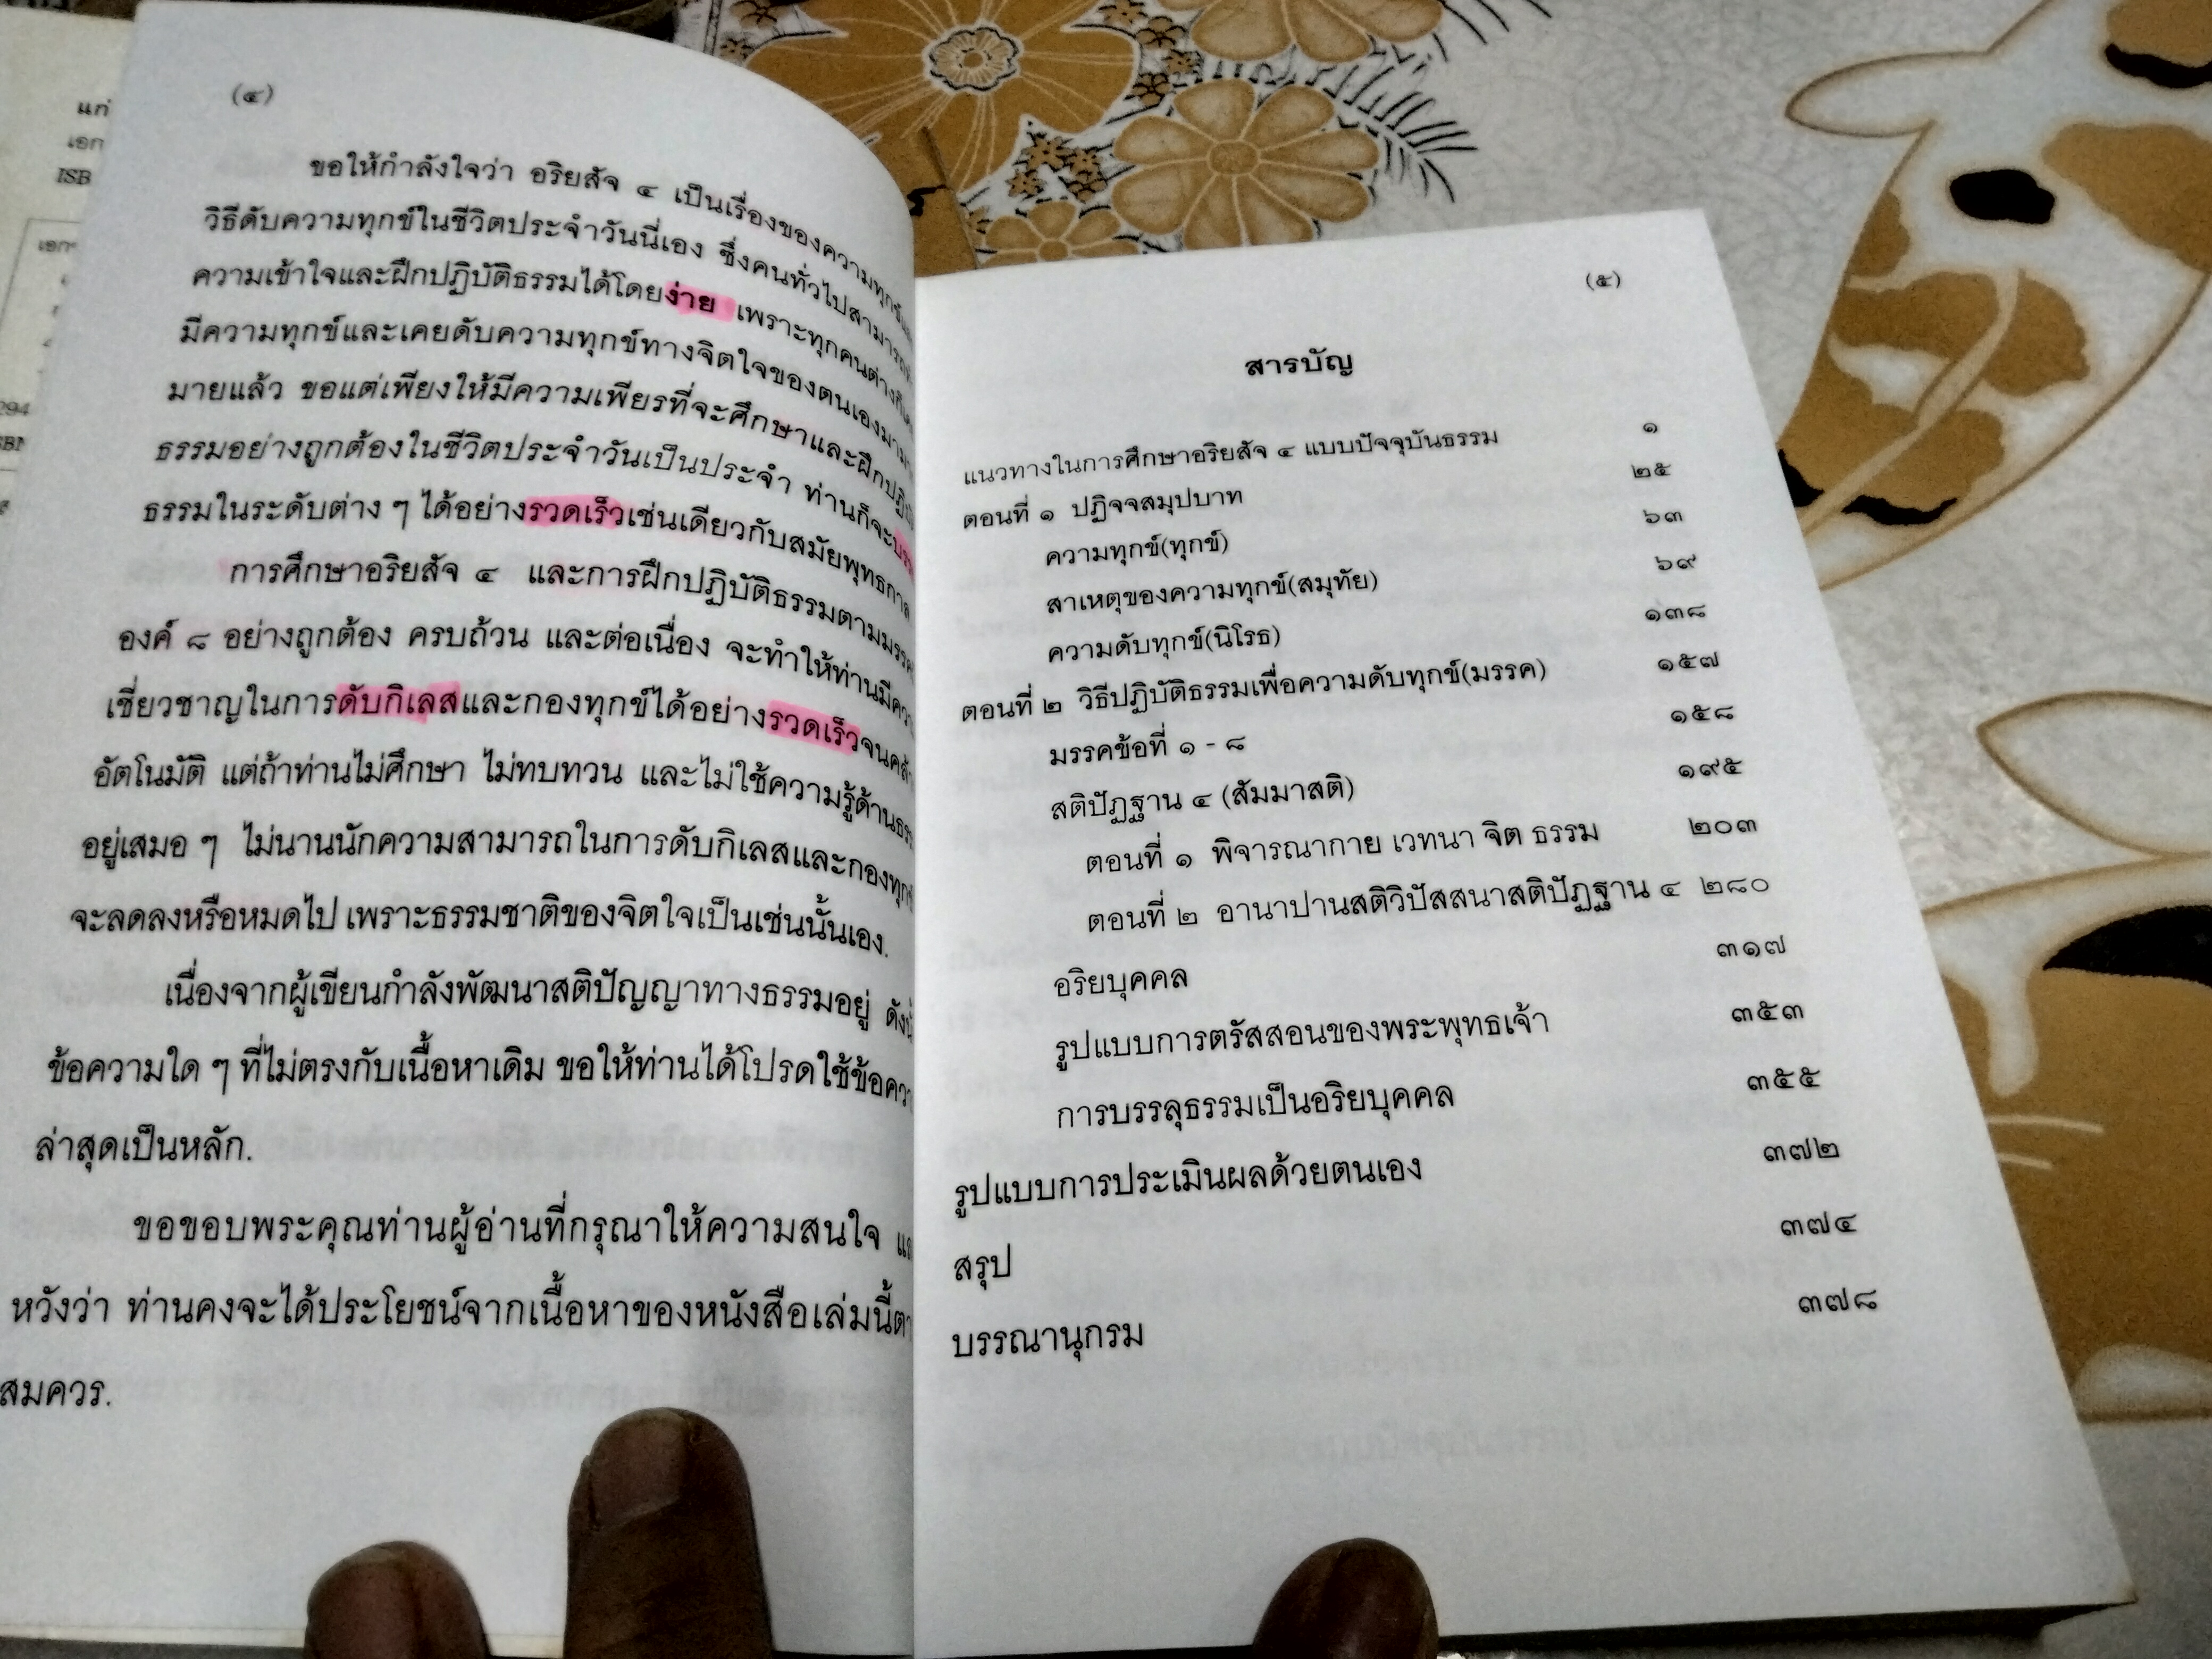 แก่
เอก
ISB
294
(๔)
ขอให้กำลังใจว่า อริยสัจ ๔ เป็นเรื่องของความทุกข์และ
วิธีดับความทุกข์ในชีวิตประจำวันนี่เอง ซึ่งคนทั่วไปสามารถ
ความเข้าใจและฝึกปฏิบัติธรรมได้โดยง่าย เพราะทุกคนต่างก็
มีความทุกข์และเคยดับความทุกข์ทางจิตใจของตนเองมา
มายแล้ว ขอแต่เพียงให้มีความเพียรที่จะศึกษาและฝึกปฏิบัติ
ธรรมอย่างถูกต้องในชีวิตประจำวันเป็นประจำ ท่านก็จะ
ธรรมในระดับต่าง ๆ ได้อย่างรวดเร็วเช่นเดียวกับสมัยพุทธกาล
การศึกษาอริยสัจ ๔ และการฝึกปฏิบัติธรรมตามมรรค
องค์ ๘ อย่างถูกต้อง ครบถ้วน และต่อเนื่อง จะทำให้ท่านมี
เชี่ยวชาญในการดับกิเลสและกองทุกข์ได้อย่างรวดเร็วจน
อัตโนมัติ แต่ถ้าท่านไม่ศึกษา ไม่ทบทวน และไม่ใช้ความรู้ด้าน
อยู่เสมอ ๆ ไม่นานนักความสามารถในการดับกิเลสและกอง
จะลดลงหรือหมดไป เพราะธรรมชาติของจิตใจเป็นเช่นนั้นเอง.
เนื่องจากผู้เขียนกำลังพัฒนาสติปัญญาทางธรรมอยู่
ข้อความใด ๆ ที่ไม่ตรงกับเนื้อหาเดิม ขอให้ท่านได้โปรดใช้
ล่าสุดเป็นหลัก.
ขอขอบพระคุณท่านผู้อ่านที่กรุณาให้ความสนใจ
หวังว่า ท่านคงจะได้ประโยชน์จากเนื้อหาของหนังสือเล่มนี้
สมควร.
(๕)
สารบัญ
แนวทางในการศึกษาอริยสัจ ๔ แบบปัจจุบันธรรม ๑
ตอนที่ ๑ ปฏิจจสมุปบาท ๒๕
ความทุกข์(ทุกข์) ๖๓
สาเหตุของความทุกข์(สมุทัย) ๖๙
ความดับทุกข์(นิโรธ) ๑๓๘
ตอนที่ ๒ วิธีปฏิบัติธรรมเพื่อความดับทุกข์(มรรค) ๑๕๗
มรรคข้อที่ ๑ - ๘ ๑๕๘
สติปัฏฐาน ๔ (สัมมาสติ) ๑๙๕
ตอนที่ ๑ พิจารณากาย เวทนา จิต ธรรม ๒๐๓
ตอนที่ ๒ อานาปานสติวิปัสสนาสติปัฏฐาน ๔ ๒๘๐
อริยบุคคล ๓๑๗
รูปแบบการตรัสสอนของพระพุทธเจ้า ๓๕๓
การบรรลุธรรมเป็นอริยบุคคล ๓๕๕
รูปแบบการประเมินผลด้วยตนเอง ๓๗๒
สรุป ๓๗๔
บรรณานุกรม ๓๗๘